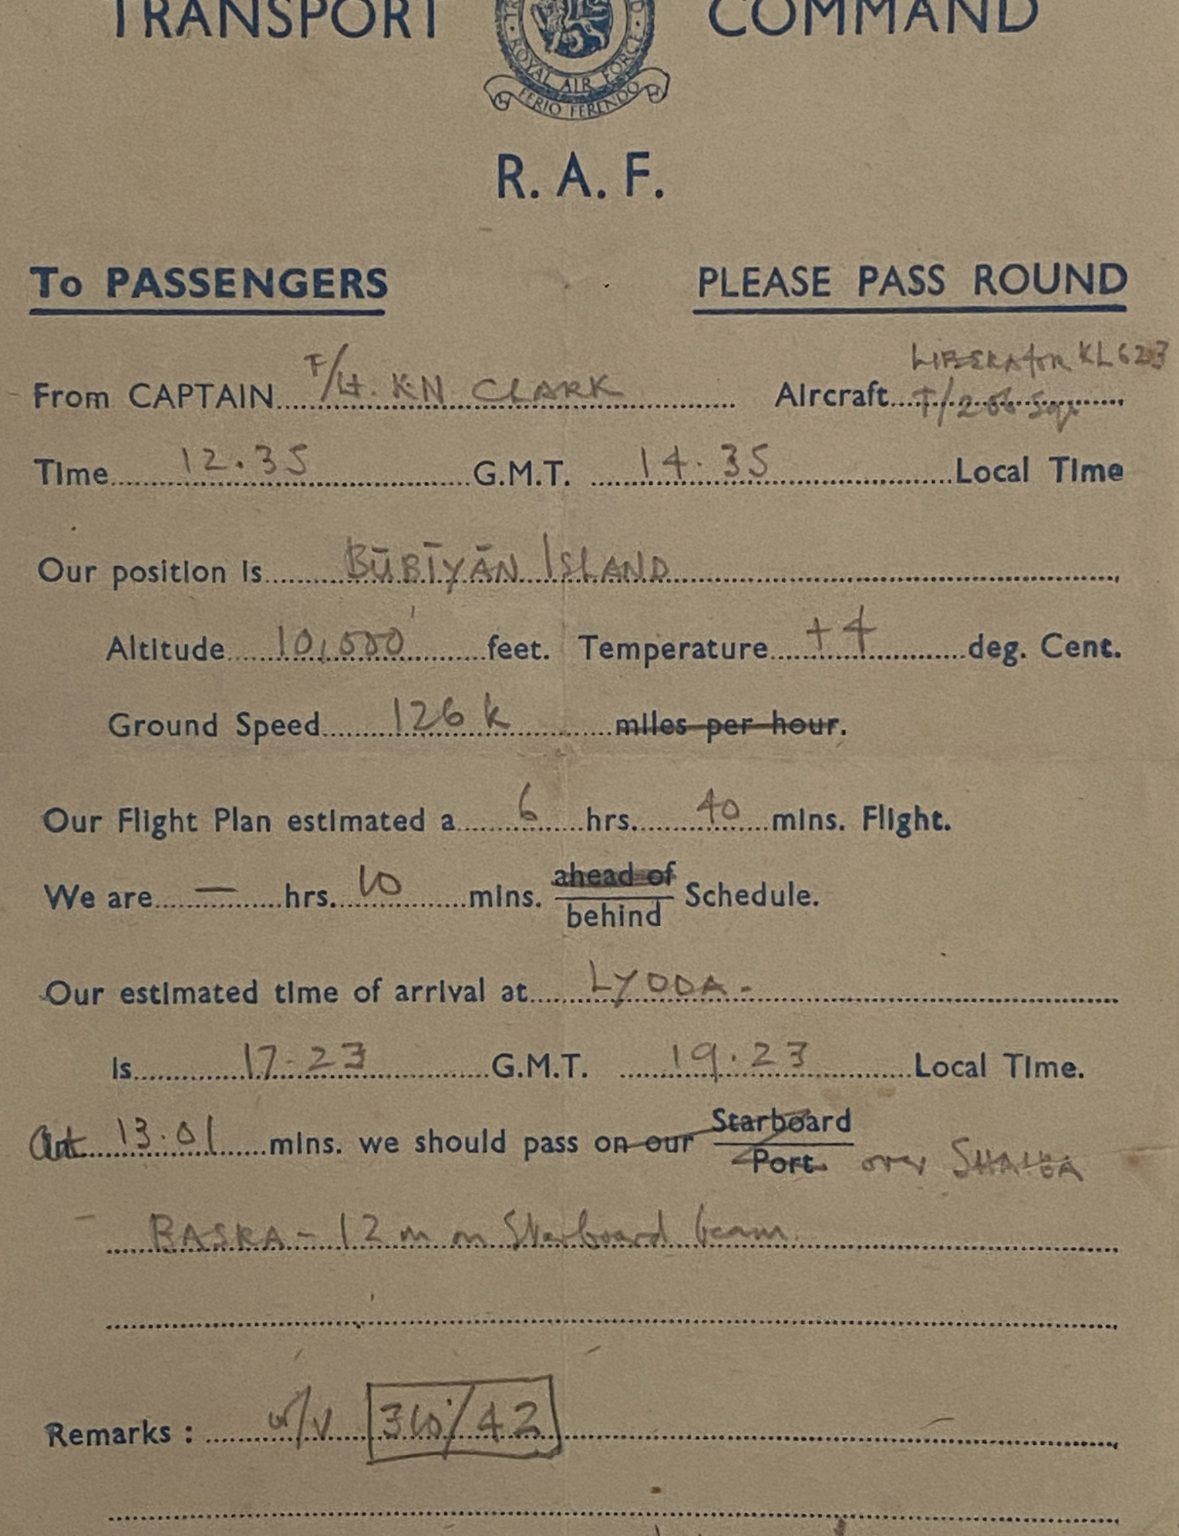 TRANSPORT COMMAND
ROYAL AIR FORCE
FERIO FERENDO
R. A. F.
To PASSENGERS PLEASE PASS ROUND
LIBERATOR KL623
From CAPTAIN F/Lt. K.N CLARK Aircraft T/206 Sqn
Time 12.35 G.M.T. 14.35 Local Time
Our position is BŪBĪYĀN ISLAND
Altitude 10,000' feet. Temperature +4 deg. Cent.
Ground Speed 126 k miles per hour.
Our Flight Plan estimated a 6 hrs. 40 mins. Flight.
We are — hrs. 10 mins. ahead of
behind Schedule.
Our estimated time of arrival at LYDDA.
Is 17-23 G.M.T. 19.23 Local Time.
At 13.01 mins. we should pass on our Starboard
Port. over SHAIBA
BASRA - 12 m on Starboard beam
Remarks : w/v 310°/42